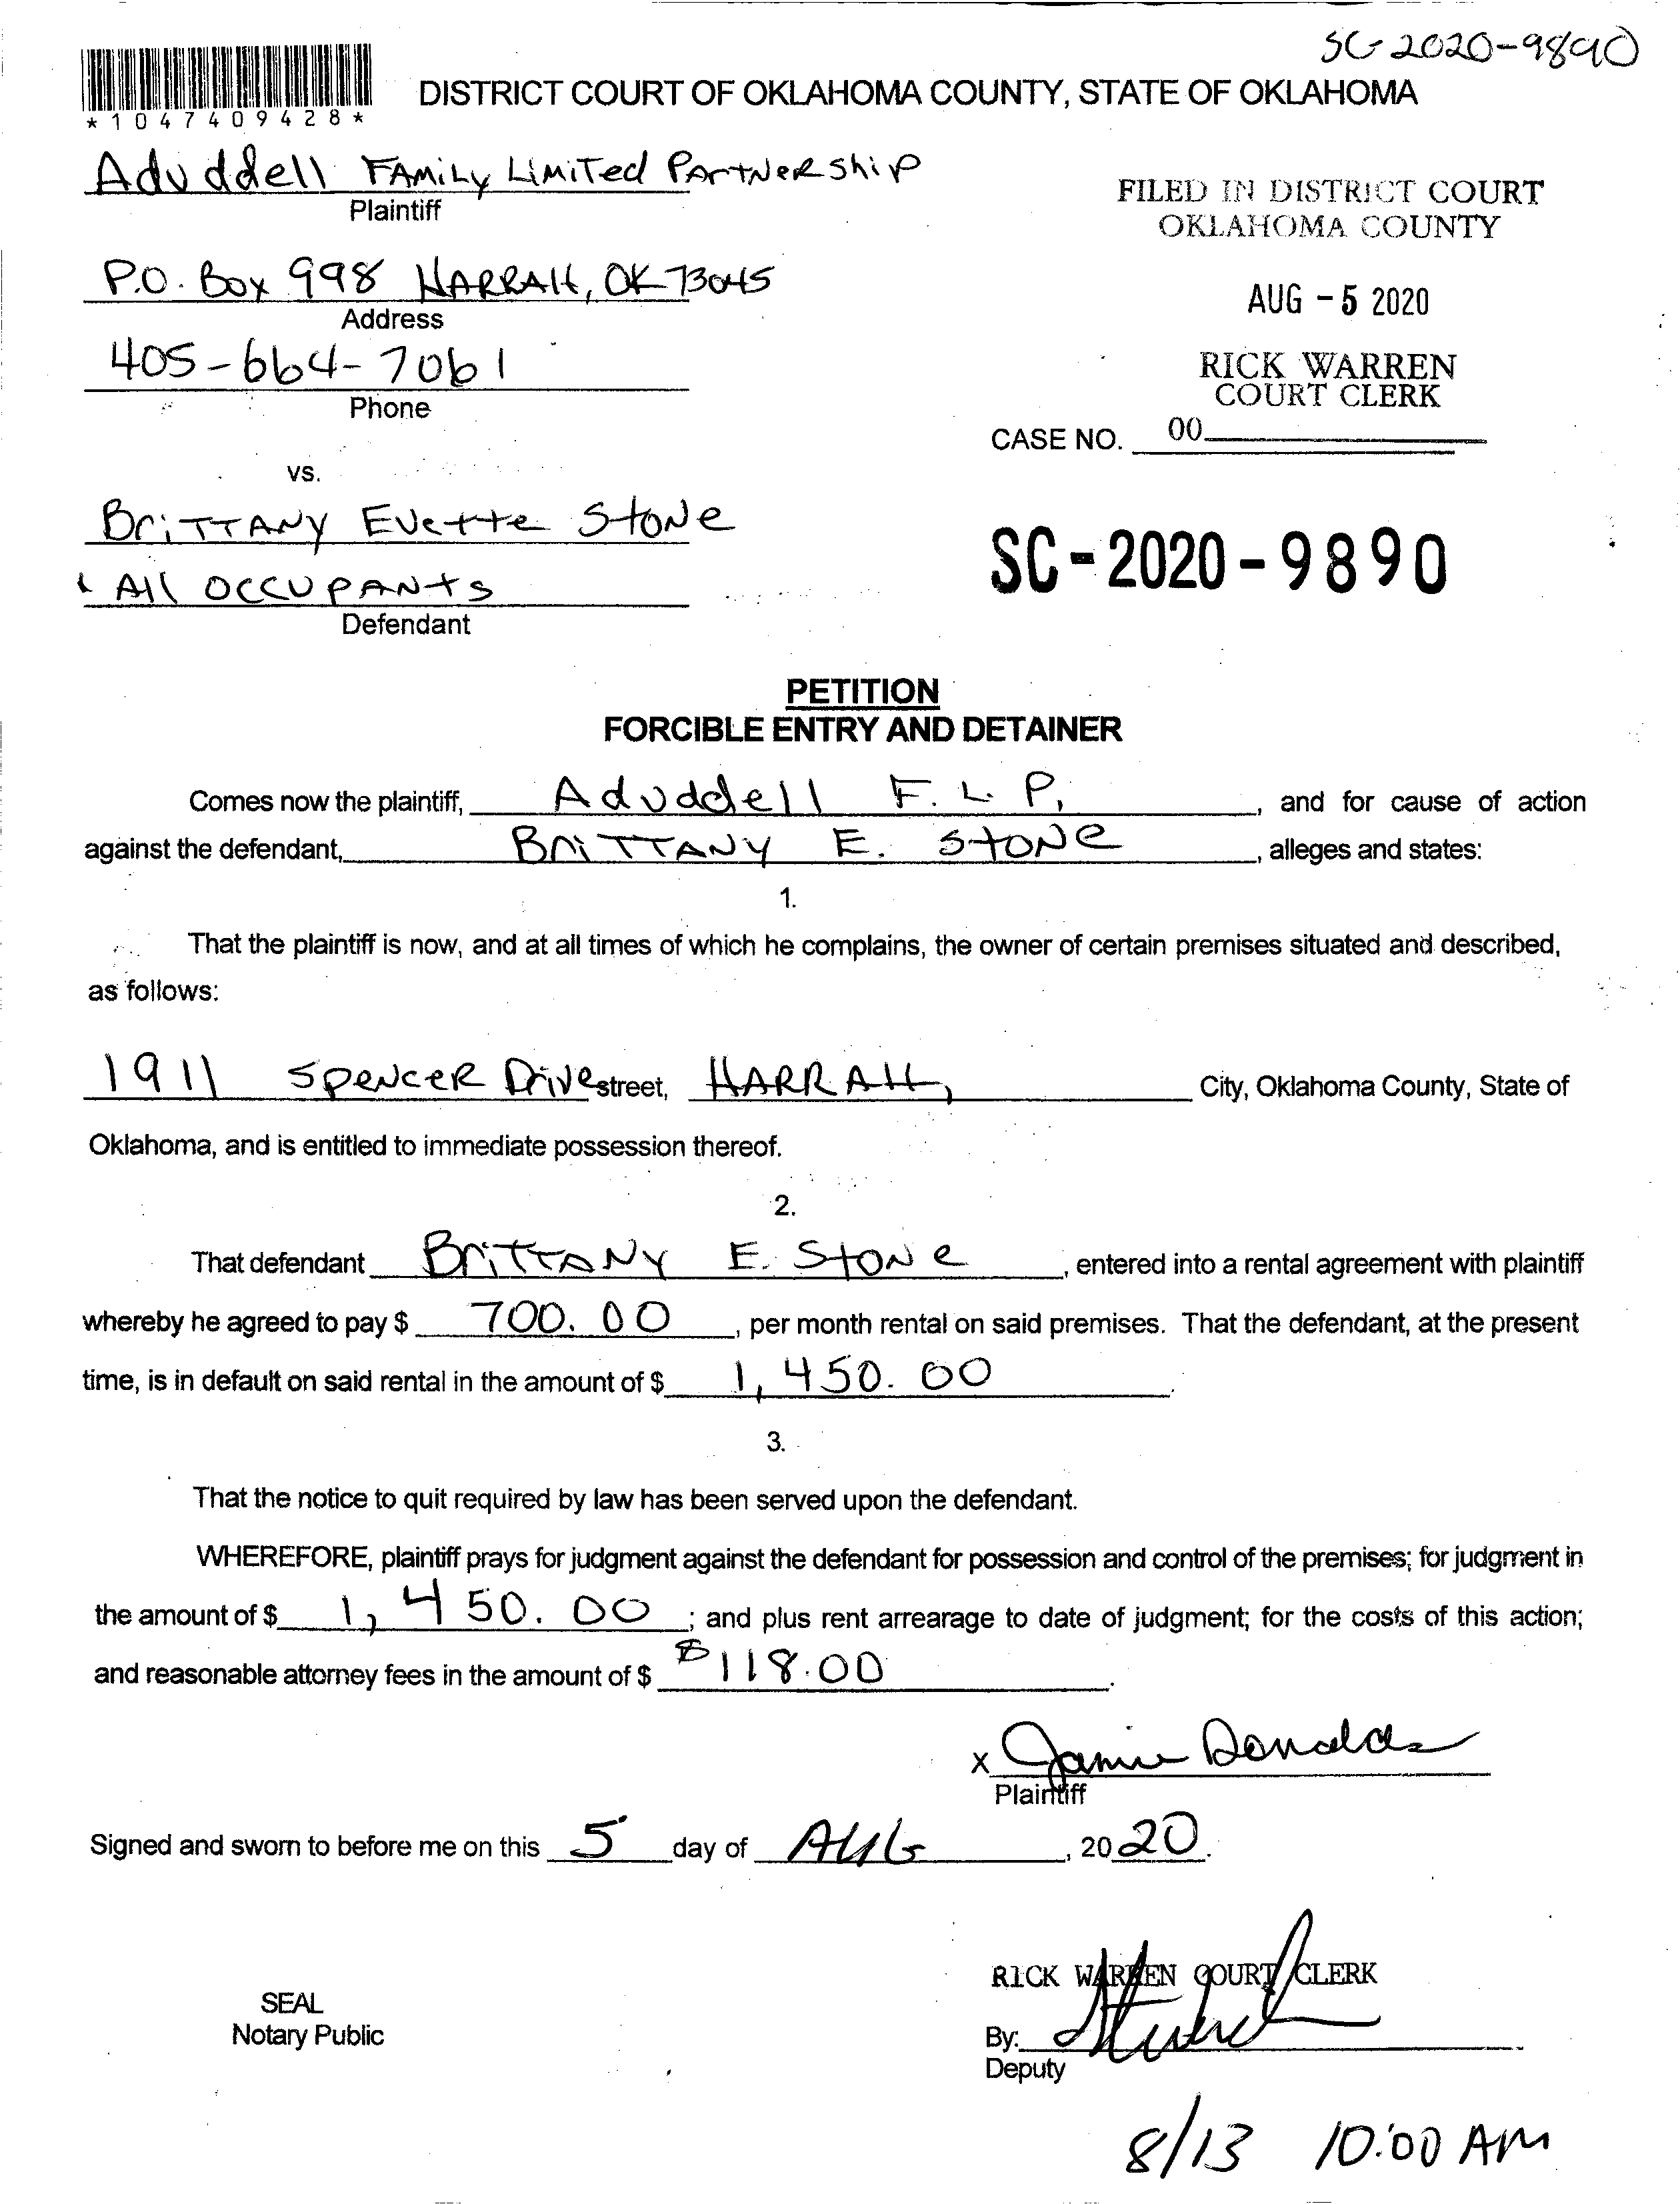 SC-2020-9890
DISTRICT COURT OF OKLAHOMA COUNTY, STATE OF OKLAHOMA
*1047409428*
Aduddell FAMiLy LiMiTed PArtNeRship
Plaintiff
FILED IN DISTRICT COURT
OKLAHOMA COUNTY
P.O. Box 998 HARRAH, OK 73045
Address
AUG -5 2020
405-664-7061
Phone
RICK WARREN
COURT CLERK
CASE NO. 00
vs.
BriTTANy Evette StoNe
& All OCCUPANtS
Defendant
SC-2020-9890
PETITION
FORCIBLE ENTRY AND DETAINER
Comes now the plaintiff, Aduddell F.L.P, , and for cause of action
against the defendant, BriTTANY E. StONe , alleges and states:
1.
That the plaintiff is now, and at all times of which he complains, the owner of certain premises situated and described,
as follows:
1911 SpeNceR Drive street, HARRAH, City, Oklahoma County, State of
Oklahoma, and is entitled to immediate possession thereof.
2.
That defendant BriTTANY E. StoNe , entered into a rental agreement with plaintiff
whereby he agreed to pay $ 700.00 , per month rental on said premises. That the defendant, at the present
time, is in default on said rental in the amount of $ 1,450.00 .
3.
That the notice to quit required by law has been served upon the defendant.
WHEREFORE, plaintiff prays for judgment against the defendant for possession and control of the premises; for judgment in
the amount of $ 1,450.00 ; and plus rent arrearage to date of judgment; for the costs of this action;
and reasonable attorney fees in the amount of $ $118.00 .
x Jamie Donalds
Plaintiff
Signed and sworn to before me on this 5 day of AUG , 2020.
RICK WARREN COURT CLERK
SEAL
Notary Public
By:
Deputy
8/13 10:00 AM